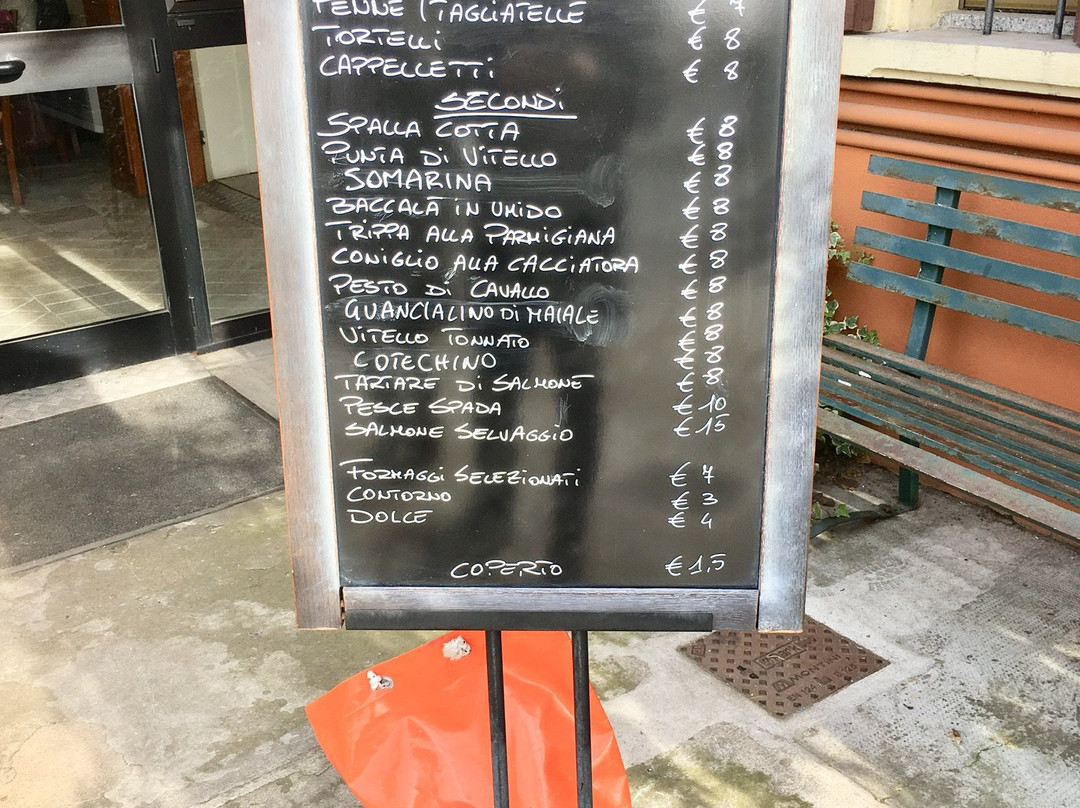 PENNE / TAGLIATELLE € 7
TORTELLI € 8
CAPPELLETTI € 8
SECONDI
SPALLA COTTA € 8
PUNTA DI VITELLO € 8
SOMARINA € 8
BACCALÀ IN UMIDO € 8
TRIPPA ALLA PARMIGIANA € 8
CONIGLIO ALLA CACCIATORA € 8
PESTO DI CAVALLO € 8
GUANCIALINO DI MAIALE € 8
VITELLO TONNATO € 8
COTECHINO € 8
TARTARE DI SALMONE € 8
PESCE SPADA € 10
SALMONE SELVAGGIO € 15
FORMAGGI SELEZIONATI € 7
CONTORNO € 3
DOLCE € 4
COPERTO € 1,5
MONTINI